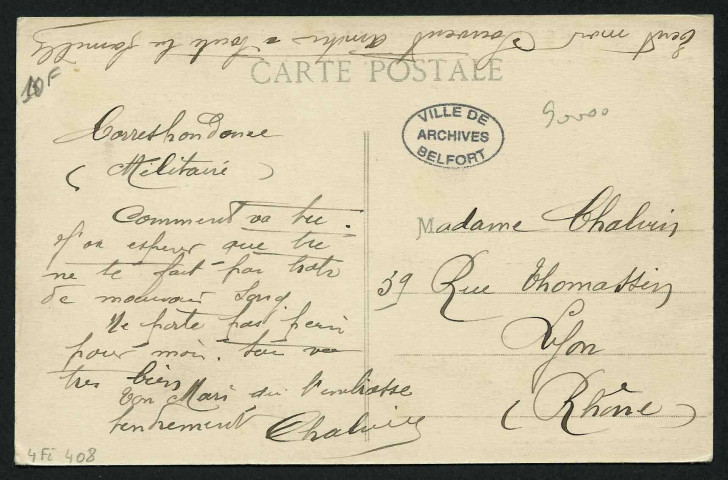 Ecrit moi souvent amities a toute la famille
CARTE POSTALE
10F
VILLE DE
ARCHIVES
BELFORT
90000
Correspondance
(Militaire)
Comment va tu.
J'en esperer que tu
ne te fait pas trop
de mauvais sang
Ne porte pas peine
pour moi. tou va
tres bien
Ton Mari qui t'embrasse
tendrement Chaluin
Madame Chaluin
59 Rue Thomassin
Lyon
(Rhône)
4Fi 408